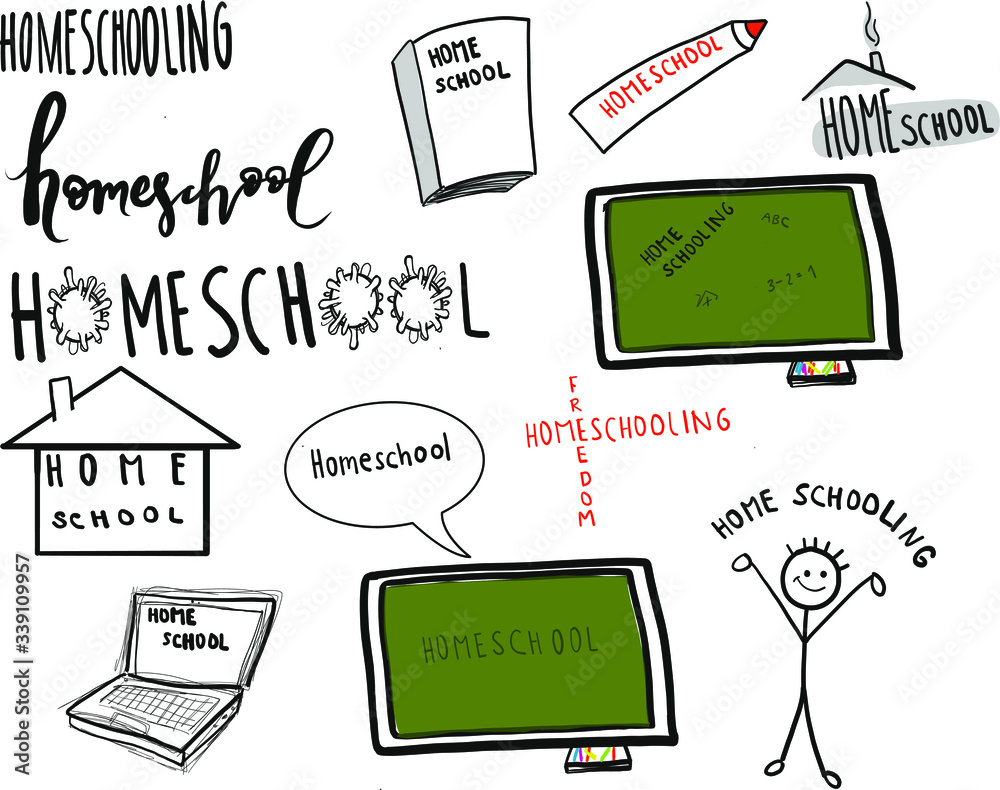 HOMESCHOOLING
HOME
SCHOOL
HOMESCHOOL
HOMESCHOOL
homeschool
HOME
SCHOOLING
ABC
3-2=1
HOMESCHOOL
FREEDOM
HOMESCHOOLING
HOME
SCHOOL
Homeschool
HOME SCHOOLING
HOME
SCHOOL
HOMESCHOOL
Adobe Stock | #339109957